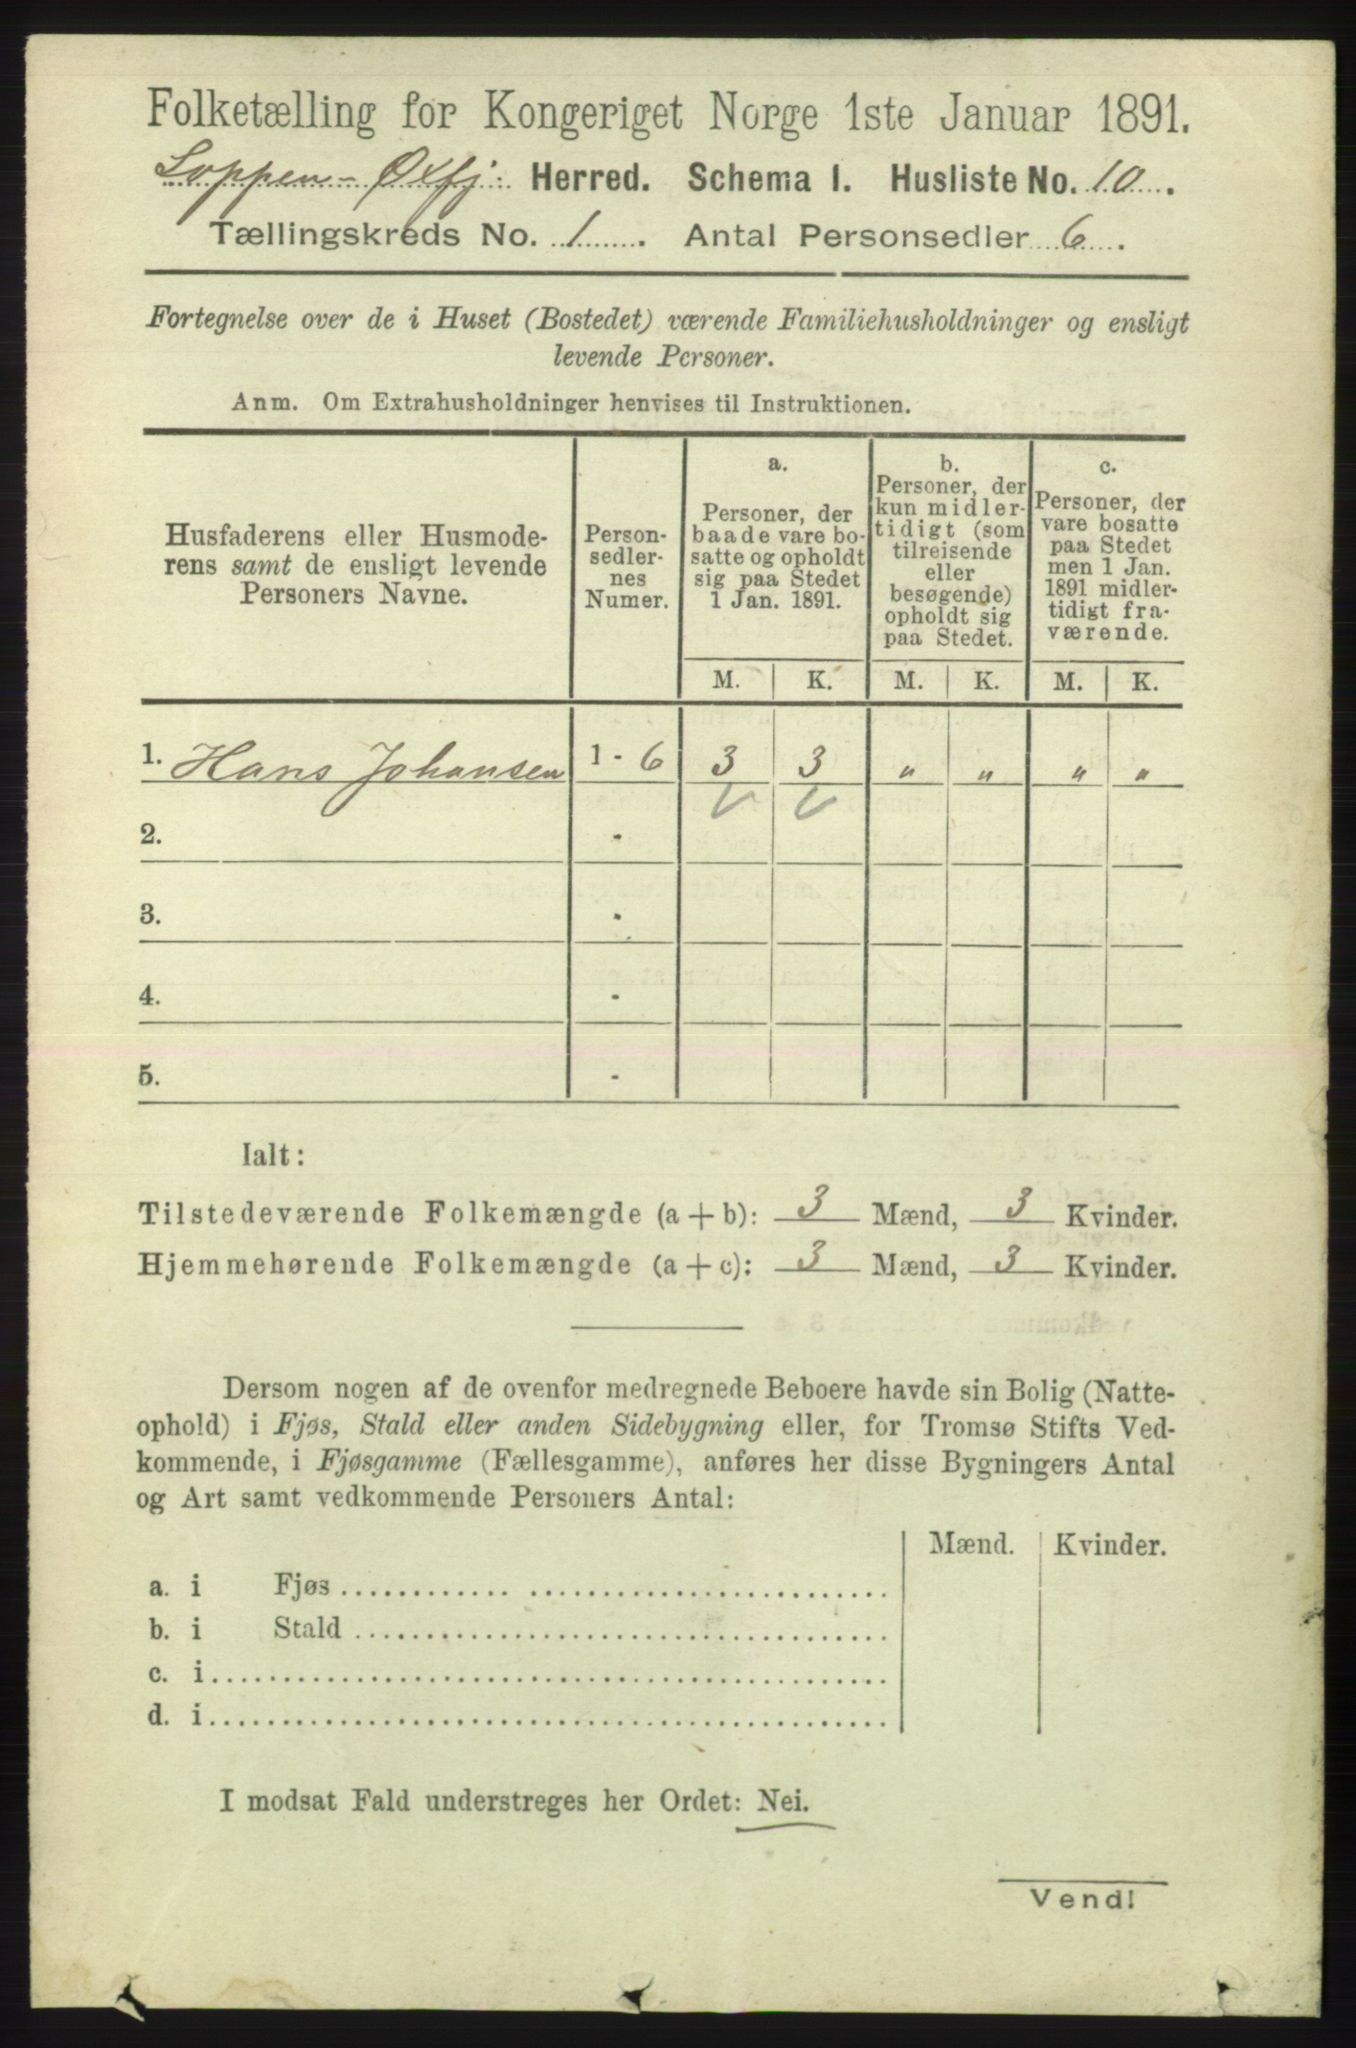 Folketælling for Kongeriget Norge 1ste Januar 1891.
Loppen - Øxfj: Herred. Schema I. Husliste No. 10.
Tællingskreds No. 1. Antal Personsedler 6.
Fortegnelse over de i Huset (Bostedet) værende Familiehusholdninger og ensligt
levende Personer.
Anm. Om Extrahusholdninger henvises til Instruktionen.
Husfaderens eller Husmode-
rens samt de ensligt levende
Personers Navne.
Person-
sedler-
nes
Numer.
a.
Personer, der
baade vare bo-
satte og opholdt
sig paa Stedet
1 Jan. 1891.
b.
Personer, der
kun midler-
tidigt (som
tilreisende
eller
besøgende)
opholdt sig
paa Stedet.
c.
Personer, der
vare bosatte
paa Stedet
men 1 Jan.
1891 midler-
tidigt fra-
værende.
M. K. M. K. M. K.
1. Hans Johansen 1 - 6 3 3 „ „ „ „
2. -
3. -
4. -
5. -
Ialt:
Tilstedeværende Folkemængde (a + b): 3 Mænd, 3 Kvinder.
Hjemmehørende Folkemængde (a + c): 3 Mænd, 3 Kvinder.
Dersom nogen af de ovenfor medregnede Beboere havde sin Bolig (Natte-
ophold) i Fjøs, Stald eller anden Sidebygning eller, for Tromsø Stifts Ved-
kommende, i Fjøsgamme (Fællesgamme), anføres her disse Bygningers Antal
og Art samt vedkommende Personers Antal:
Mænd. Kvinder.
a. i Fjøs
b. i Stald
c. i
d. i
I modsat Fald understreges her Ordet: Nei.
Vend!